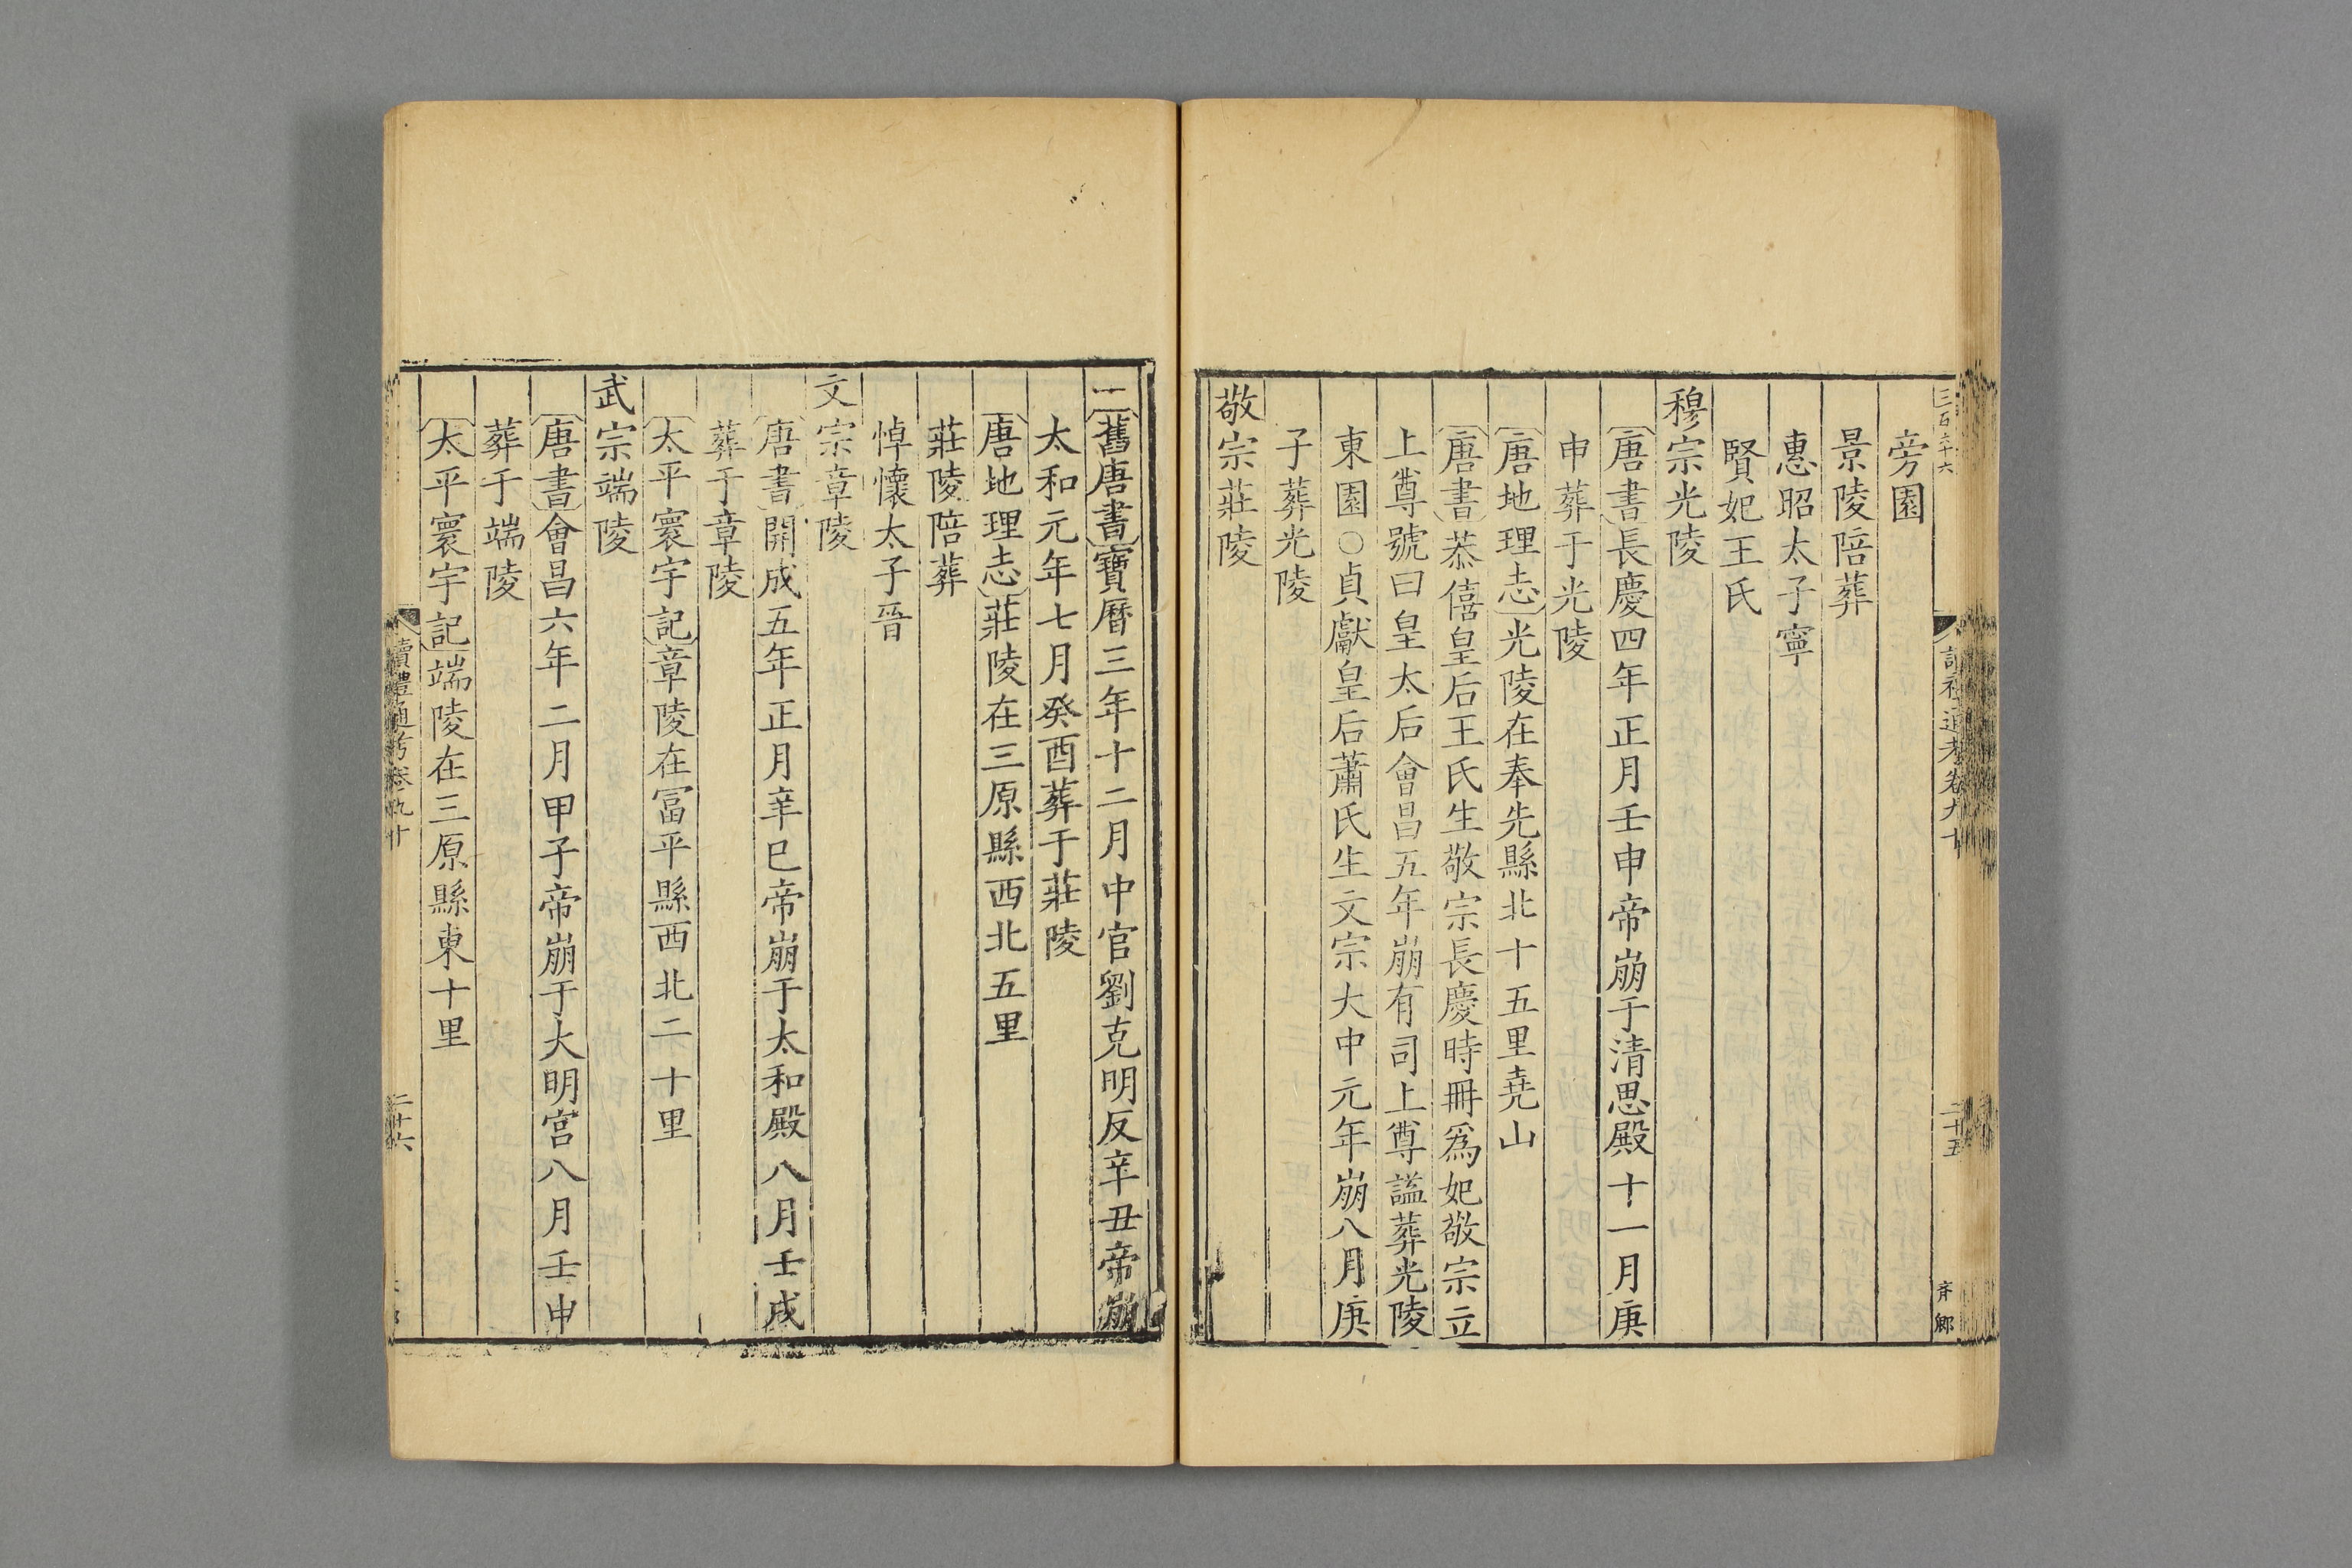 三百六十六
讀禮通考卷九十
二十五
旁園
景陵陪葬
惠昭太子寧
賢妃王氏
穆宗光陵
唐書長慶四年正月壬申帝崩于清思殿十一月庚
申葬于光陵
唐地理志光陵在奉先縣北十五里堯山
唐書恭僖皇后王氏生敬宗長慶時冊爲妃敬宗立
上尊號曰皇太后會昌五年崩有司上尊謚葬光陵
東園○貞獻皇后蕭氏生文宗大中元年崩八月庚
子葬光陵
敬宗莊陵
一舊唐書寶曆三年十二月中官劉克明反辛丑帝崩
太和元年七月癸酉葬于莊陵
唐地理志莊陵在三原縣西北五里
莊陵陪葬
悼懷太子晉
文宗章陵
唐書開成五年正月辛巳帝崩于太和殿八月壬戌
葬于章陵
太平寰宇記章陵在冨平縣西北二十里
武宗端陵
唐書會昌六年二月甲子帝崩于大明宮八月壬申
葬于端陵
太平寰宇記端陵在三原縣東十里
讀禮通考卷九十
二十六